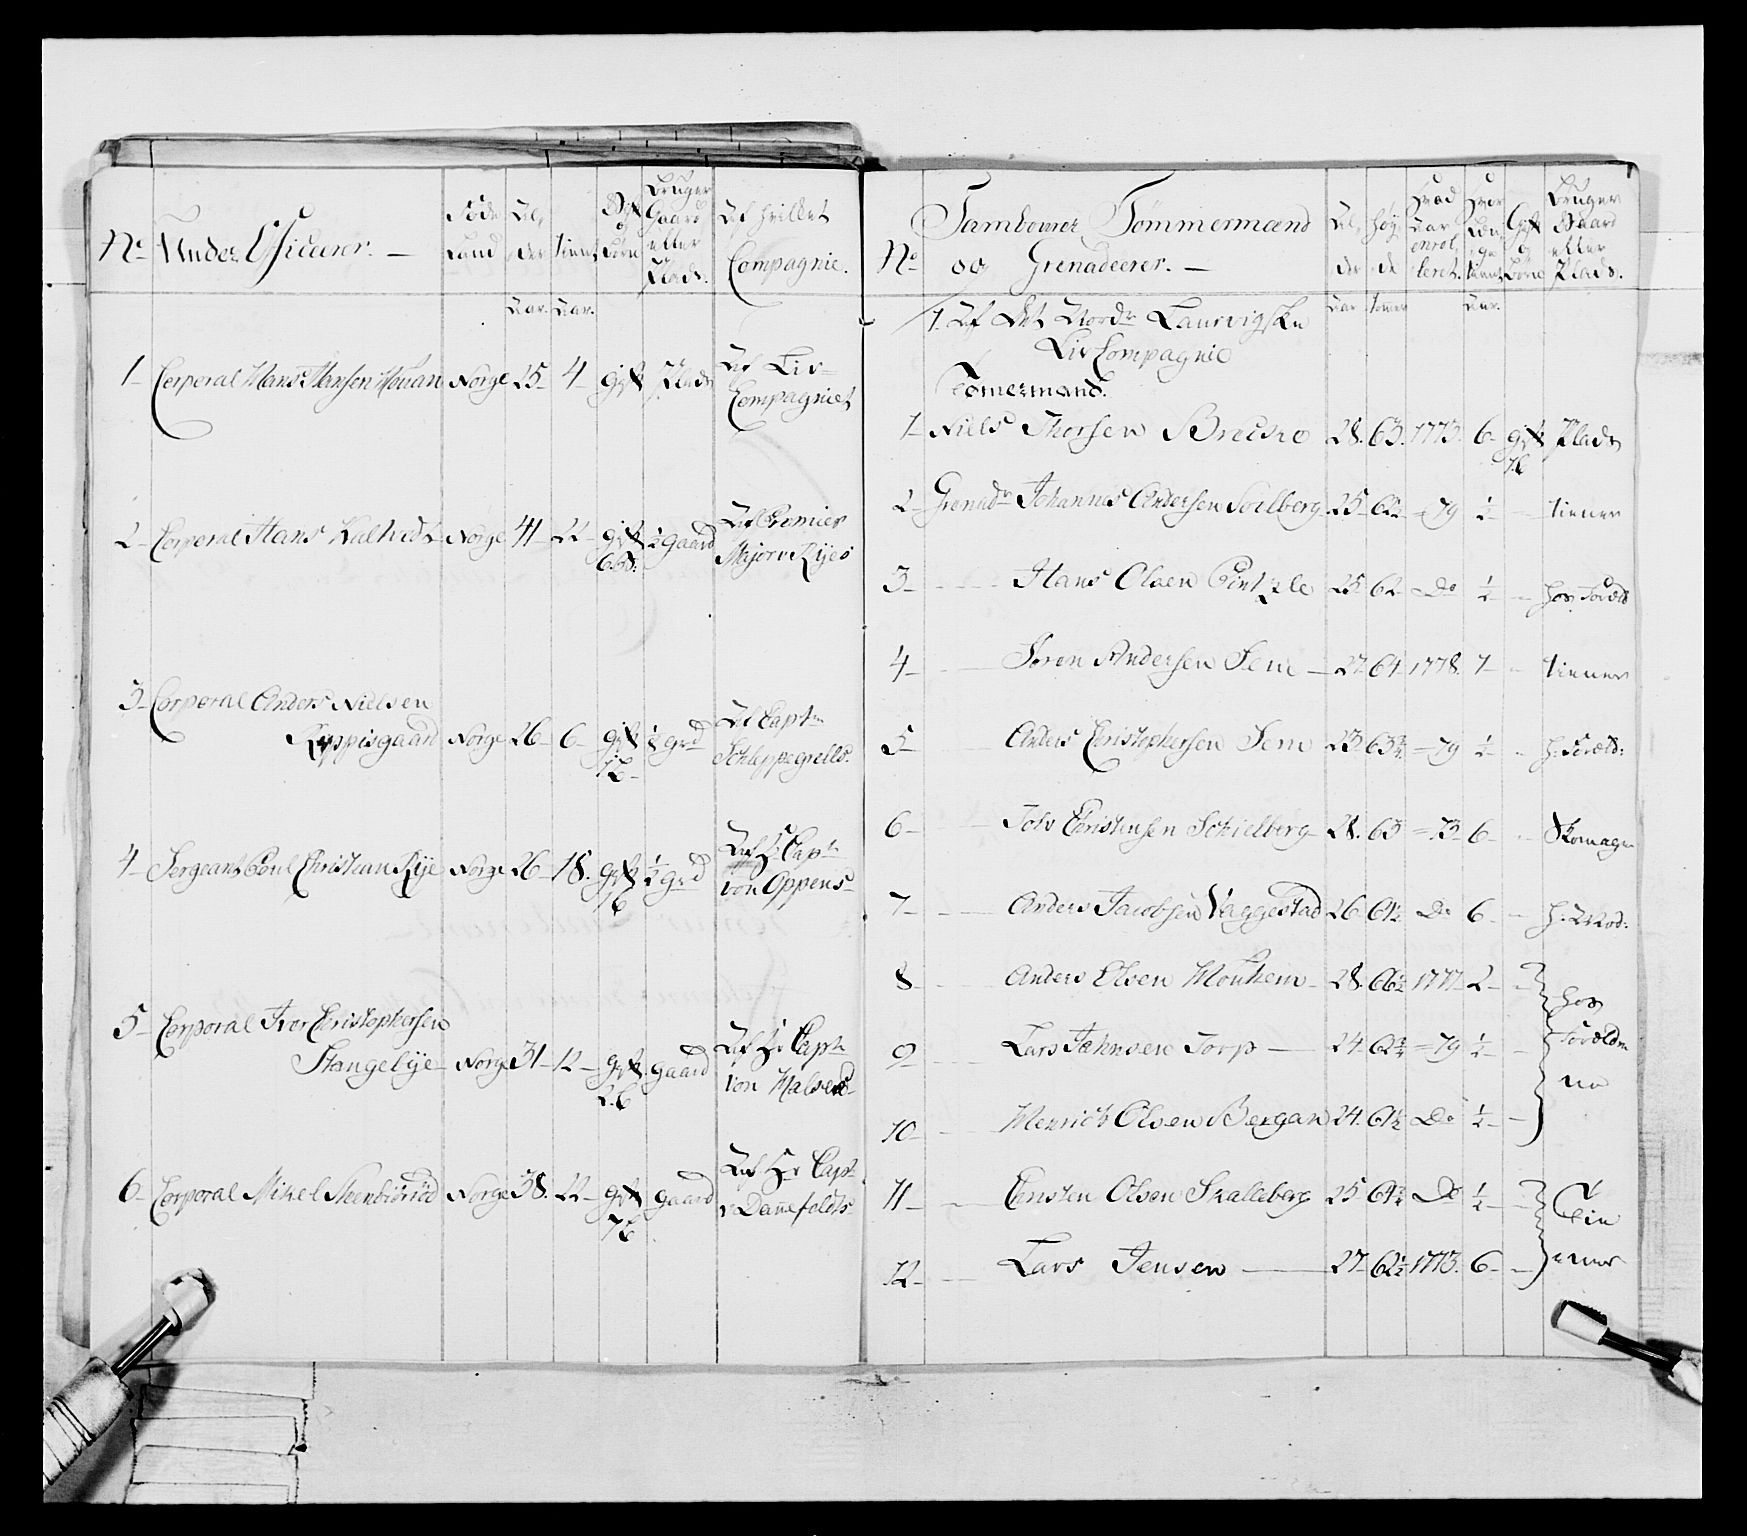 No
Under Officerer. —
Føde Land
Al, der
tient
Gift og Børn
Bruger Gaard eller Plads.
Af hvilket Compagnie.
Aar. Aar.
1 Corporal Hans Hansen Mouan Norge 25 4 gift Plads Af Liv Compagniet
2 Corporal Hans Kalhvedt Norge 41 22 gift 6 B: ½ gaard Af Premier Major v Ryes
3 Corporal Anders Nielsen
Reppisgaard Norge 26 6 gift 1 B ½ grd Af Capt Schleppegrells.
4 Sergeant Poul Christian Rye Norge 26 18. gift 1 B ½ grd Af Hr Capt von Oppens
5 Corporal Iver Christophersen
Stangebye Norge 31 12 gift 2 B gaard Af Hr Capt von Halsens
6 Corporal Mikel Steenbiörød Norge 38. 22 gift 7 B gaard Af Hr Capt v Dannefeldts
No
Tambourer Tømmermænd
og Grenadeerer. —
Al, der
Høy de
Hvad Aar enrol, leret.
Hvor Længe tient
Gift og Børn
Bruger Gaard eller Plads.
Aar tomer Aar.
1. Af Det Nordr Laurvigske
Liv Compagnie
Tömermand.
1 Niels Thorsen Brecke 28. 63. 1773. 6 gift 1 B Plads
2 Grenadr Johannes Andersen Solberg 25 62½ = 79 ½ tiener
3 Hans Olsen 25 62 = Do ½ hos Foræld
4 Søren Andersen Sem 27 64 1778. 1 tiener
5 Anders Christophersen Sem 23 63¾ = 79 ½ h: Foræld:
6 Christensen Schielberg 28. 63 = 73 6 Skomager
7 Anders Jacobsen Vaggestad 26 61½ Do 6 h: Mod:
8 Anders Olsen Mouhem 28. 66½ 1777 2 hos
9 Lars Jahnsen Torp 24 62¾ = 79 ½ Forældre
ne
10 Henrich Olsen Bergan 24. 61½ Do ½
11 Christen Olsen Skalleberg 25 64¾ Do ½ Tie
12 Lars Jensen 27 62½ 1773. 6 ener